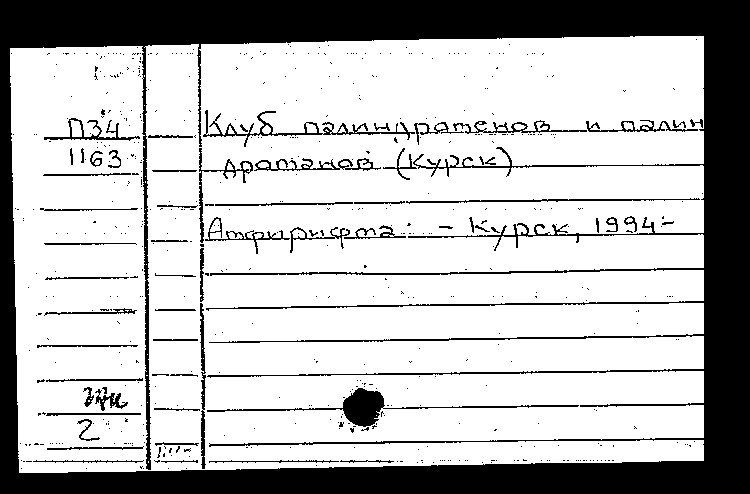 П34
1163
Клуб палиндроменов и палин
дроманов (Курск)
Амфирифма: - Курск, 1994-
2